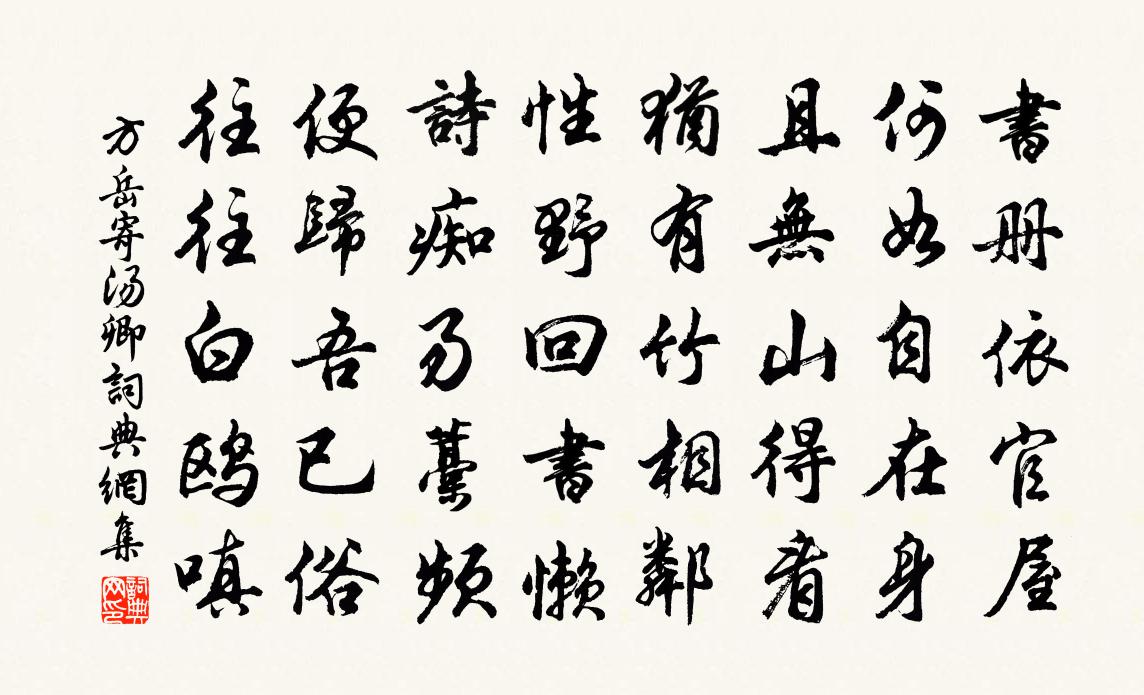 書册依官屋
何如自在身
且無山得看
猶有竹相鄰
性野回書懶
詩痴易藁頻
便歸吾已俗
往往白鸥嗔
方岳寄汤卿詞典網集
詞典网印